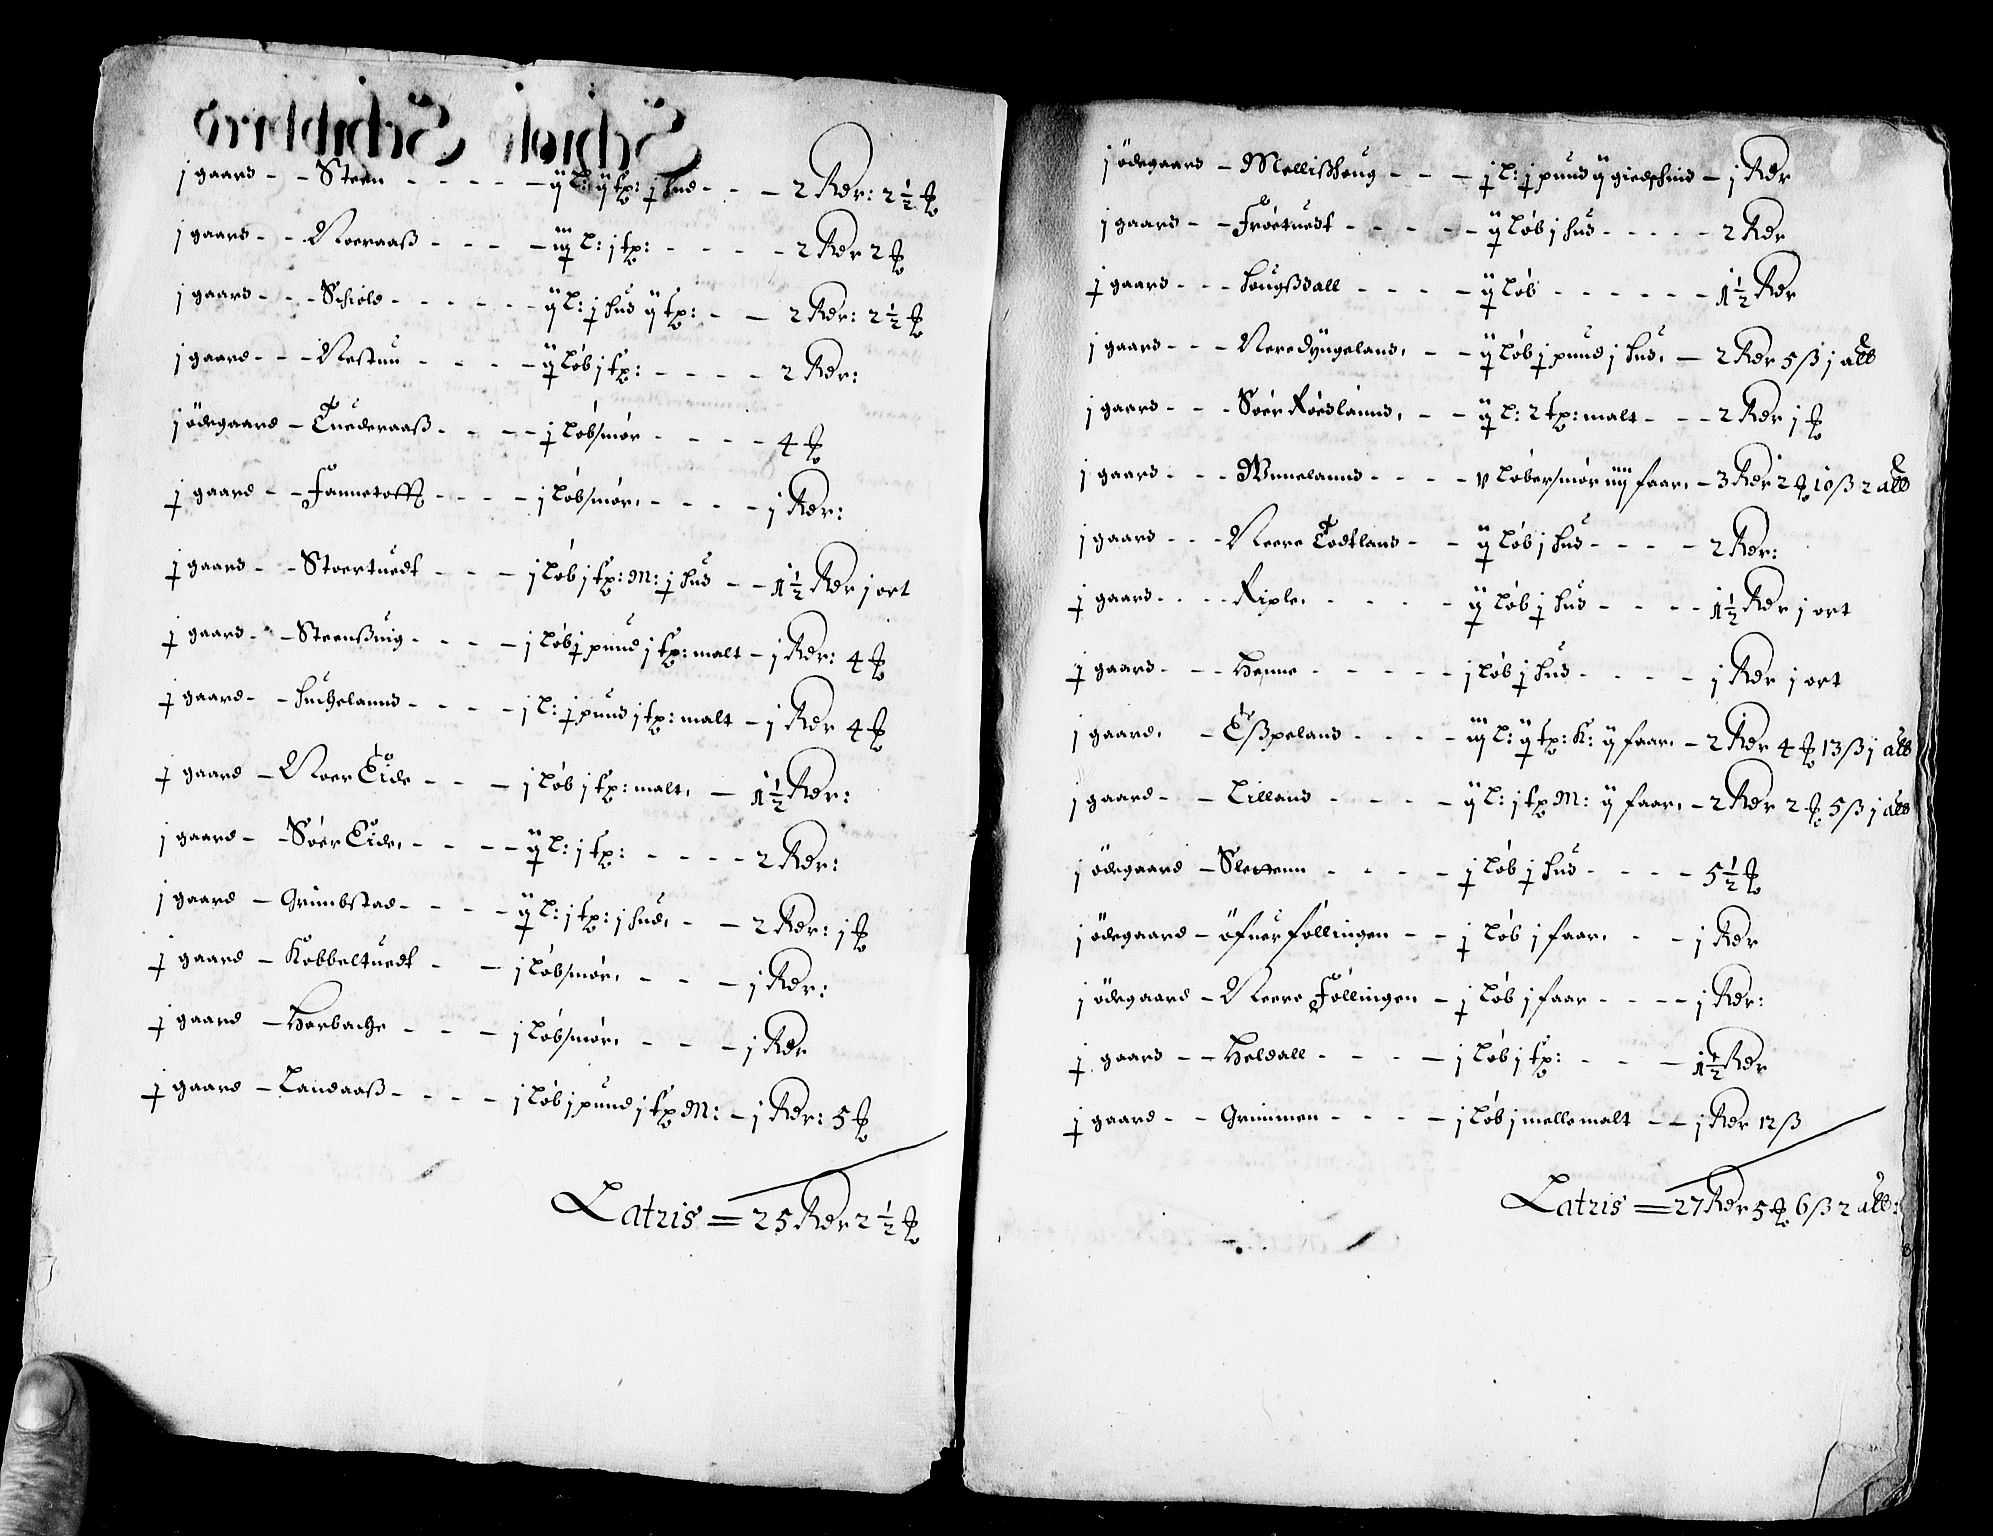 j gaard - - Steen - - - - - ij l: ij tp: j hud - - - 2 Rdr: 2½ ß
j gaard - - Noeraaß - - - - iij l: j tp: - - - - - 2 Rdr 2 ß
j gaard - - - Schiold - - - - - ij l: j hud ij tp: - - 2 Rdr: 2½ ß
j gaard - - - Nestun - - - - ij løb j tp: - - - - 2 Rdr:
j ødegaard - Tuederaaß - - - - j løb smør - - - - 4 ß
j gaard - - Fannetofft - - - - j løb smør, - - - - j Rdr:
j gaard - - Stoertuedt - - - j løb j tp: M: j hud - - 1½ Rdr j ort
j gaard - - Steenßuig - - - - j løb j pund j tp: malt - j Rdr: 4 ß
j gaard - - huchelannd - - - - j l: j pund j tp: malt - j Rdr 4 ß
j gaard - Noer Eide - - - j løb j tp: malt, - 1½ Rdr:
j gaard - Søer Eide, - - - - ij l: j tp: - - - - 2 Rdr:
j gaard - Grimbstad - - - - ij l: j tp: j hud, - - 2 Rdr: j ß
j gaard - Kobbeltuedt - - j løb smør, - - - j Rdr:
j gaard - Horbache - - - j løb smør, - - - j Rdr
j gaard - Landaaß - - - - j løb j pund j tp M: - j Rdr: 5 ß
Latris = 25 Rdr 2½ ß
j ødegaard - Mellißhoug - - - j l: j pund ij giedschind - j Rdr
j gaard - - Frøetuedt - - - - - ij løb j hud - - - - 2 Rdr
j gaard - - - hougßdall - - - - ij løb - - - - - - 1½ Rdr
j gaard - - - Neredyngeland, - - ij løb j pund j hud, - 2 Rdr 5 ß j alb
j gaard - - - Søer Røedlannd, - - ij l: 2 tp: malt - - - 2 Rdr j ß
j gaard - - - Winnelannd - - - - v løber smør iiij faar, - 3 Rdr 2 ß 10 ß 2 alb
j gaard - - - Neere Todtland - - ij løb j hud - - - - 2 Rdr:
j gaard - - - Riple, - - - - ij løb j hud - - - - 1½ Rdr j ort
j gaard - - - Henne - - - - - j løb j hud - - - - j Rdr j ort
j gaard, - Eßpeland - - - - iij l: ij tp: K: ij faar, - 2 Rdr 4 ß 13 ß j alb
j gaard - - Lilland - - - - ij l: j tp M: ij faar, - 2 Rdr 2 ß 5 ß j alb
j ødegaard - Slettenn - - - - j løb j hud - - - - 5½ ß
j ødegaard - Øfuer føllingen - - j løb j faar, - - j Rdr
j ødegaard - Neere Føllingen - j løb j faar - - - - j Rdr:
j gaard - - Heldall - - - - j løb j tp: - - - 1½ Rdr
j gaard - - Grimmen - - - - j løb j melle malt - - j Rdr 12 ß
Latris = 27 Rdr 5 ß 6 ß 2 alb: